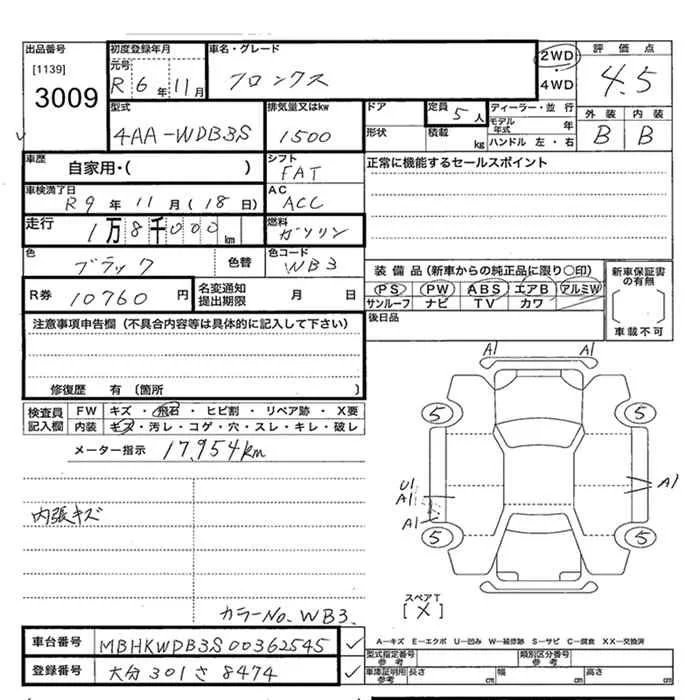 出品番号 初度登録年月 車名・グレード 2WD 評価点
[1139] 元号 フロンクス ・ 4.5
3009 R 6年 11月 4WD
型式 排気量又はkw ドア 定員 5人 ディーラー・並 行 外装 内装
4AA-WDB3S 1500 形状 積載 kg モデル年式 年 B B
ハンドル 左・右
車歴 自家用・( ) シフト FAT 正常に機能するセールスポイント
車検満了日 R9年 11月 (18日) AC ACC
走行 1万8千000km 燃料 ガソリン
色 ブラック 色替 色コード WB3
装備品(新車からの純正品に限り〇印) 新車保証書の有無
R券 10760円 名変通知提出期限 月 日 PS PW ABS エアB アルミW
サンルーフ ナビ TV カワ
注意事項申告欄(不具合内容等は具体的に記入して下さい) 後日品 車載不可
修復歴 有(箇所 )
検査員記入欄 FW キズ・飛石・ヒビ割・リペア跡・X要
内装 キズ・汚レ・コゲ・穴・スレ・キレ・破レ
メーター指示 17,954km
内張キズ
カラーNo. WB3.
A1 A1
5 5
U1
A1 A1
A1
5 5
スペアT
[X]
車台番号 MBHKWDB3S00362545
登録番号 大分 301 さ 8474
A－キズ E－エクボ U－凹み W－補修跡 S－サビ C－腐食 XX－交換済
型式指定番号参考 類別区分番号参考
車庫証明用参考 長さ cm 幅 cm 高さ cm